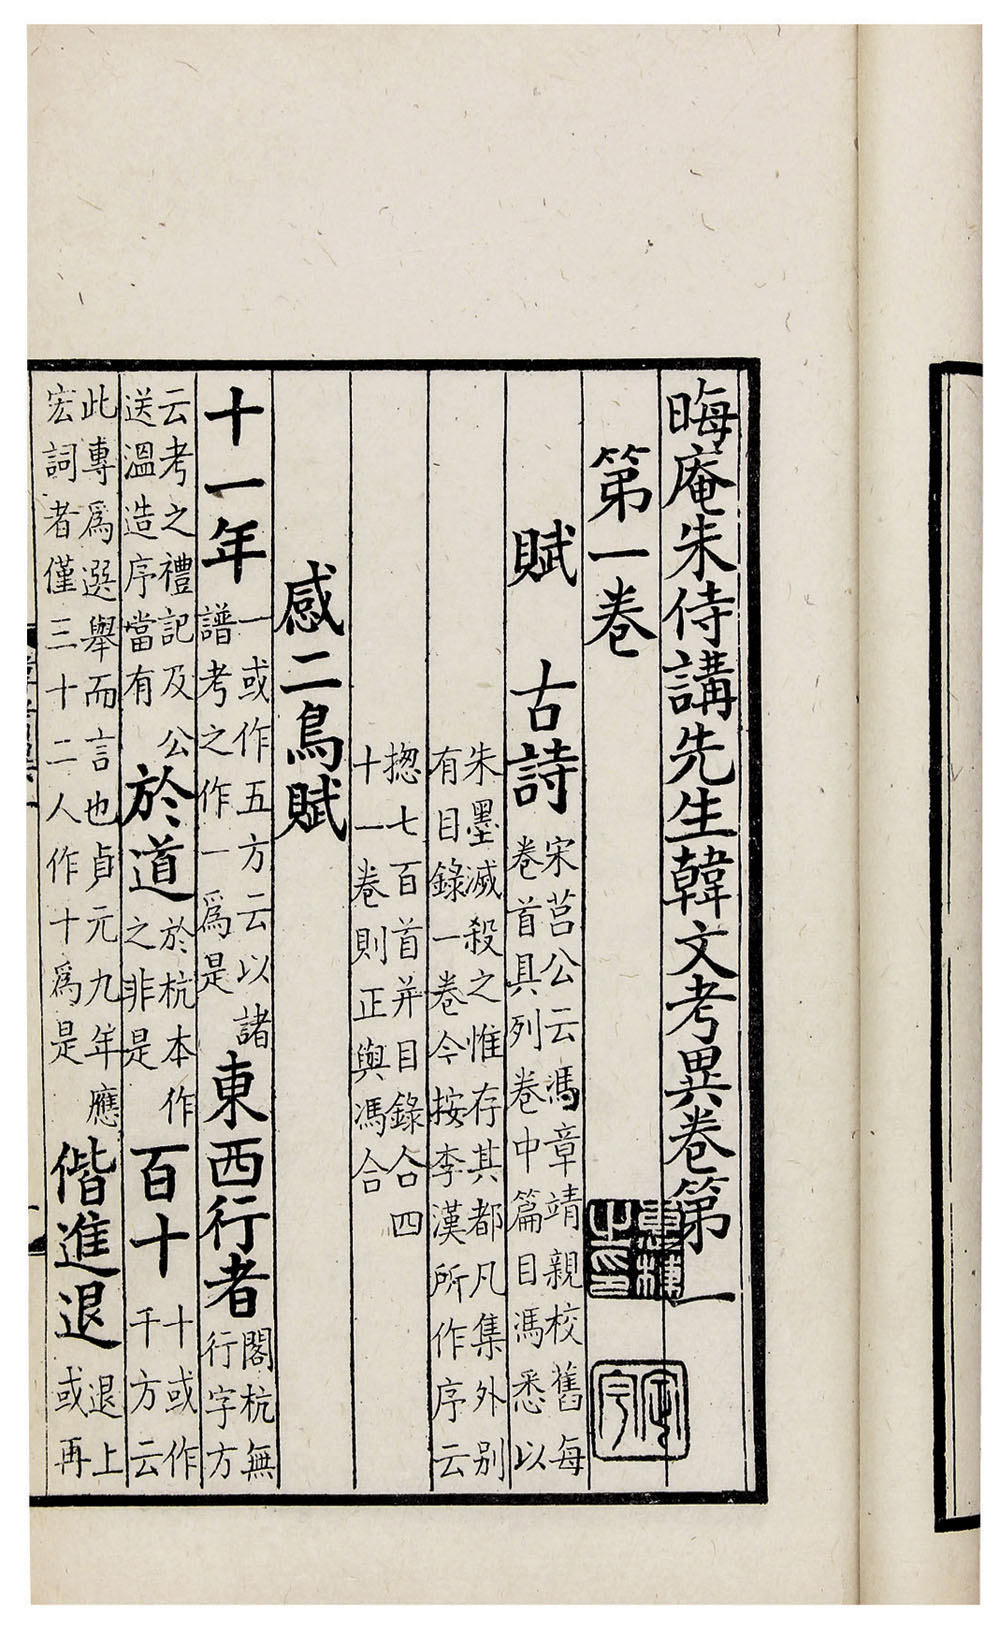 晦庵朱侍講先生韓文考異卷第一
第一卷
賦　古詩宋莒公云馮章靖親校舊每卷首具列卷中篇目馮悉以
朱墨滅殺之惟存其都凡集外别有目錄一卷今按李漢所作序云
揔七百首并目錄合四十一卷則正與馮合
感二鳥賦
十一年一或作五方云以諸譜考之作一爲是東西行者閣杭無行字方
云考之禮記及公送溫造序當有於道於杭本作之非是百十十或作千方云
此專爲選舉而言也貞元九年應宏詞者僅三十二人作十爲是偕進退退上或再